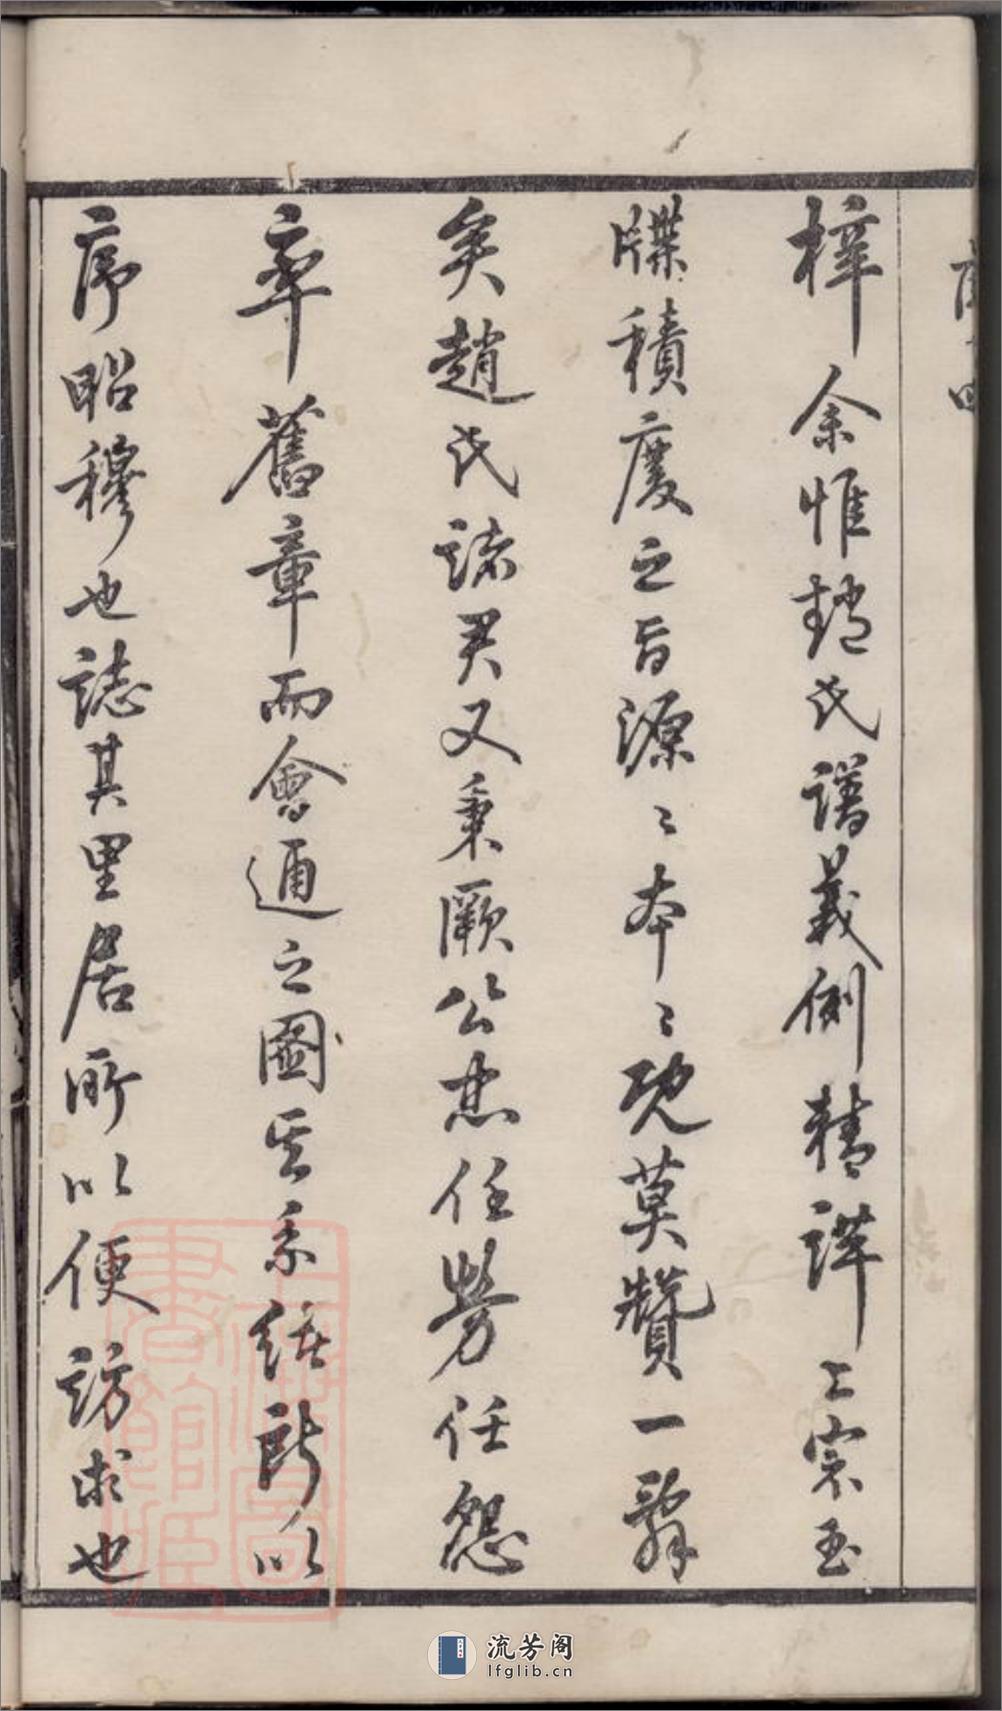 梓余惟趙氏譜義例精詳上宗玉
牒積慶之旨源〻本〻既莫贊一辭
矣趙氏諸君又秉厥公忠任勞任怨
率舊章而會通之圖其系統所以
序昭穆也誌其里居所以便訪求也
上海圖
書館藏
流芳阁
lfglib.cn